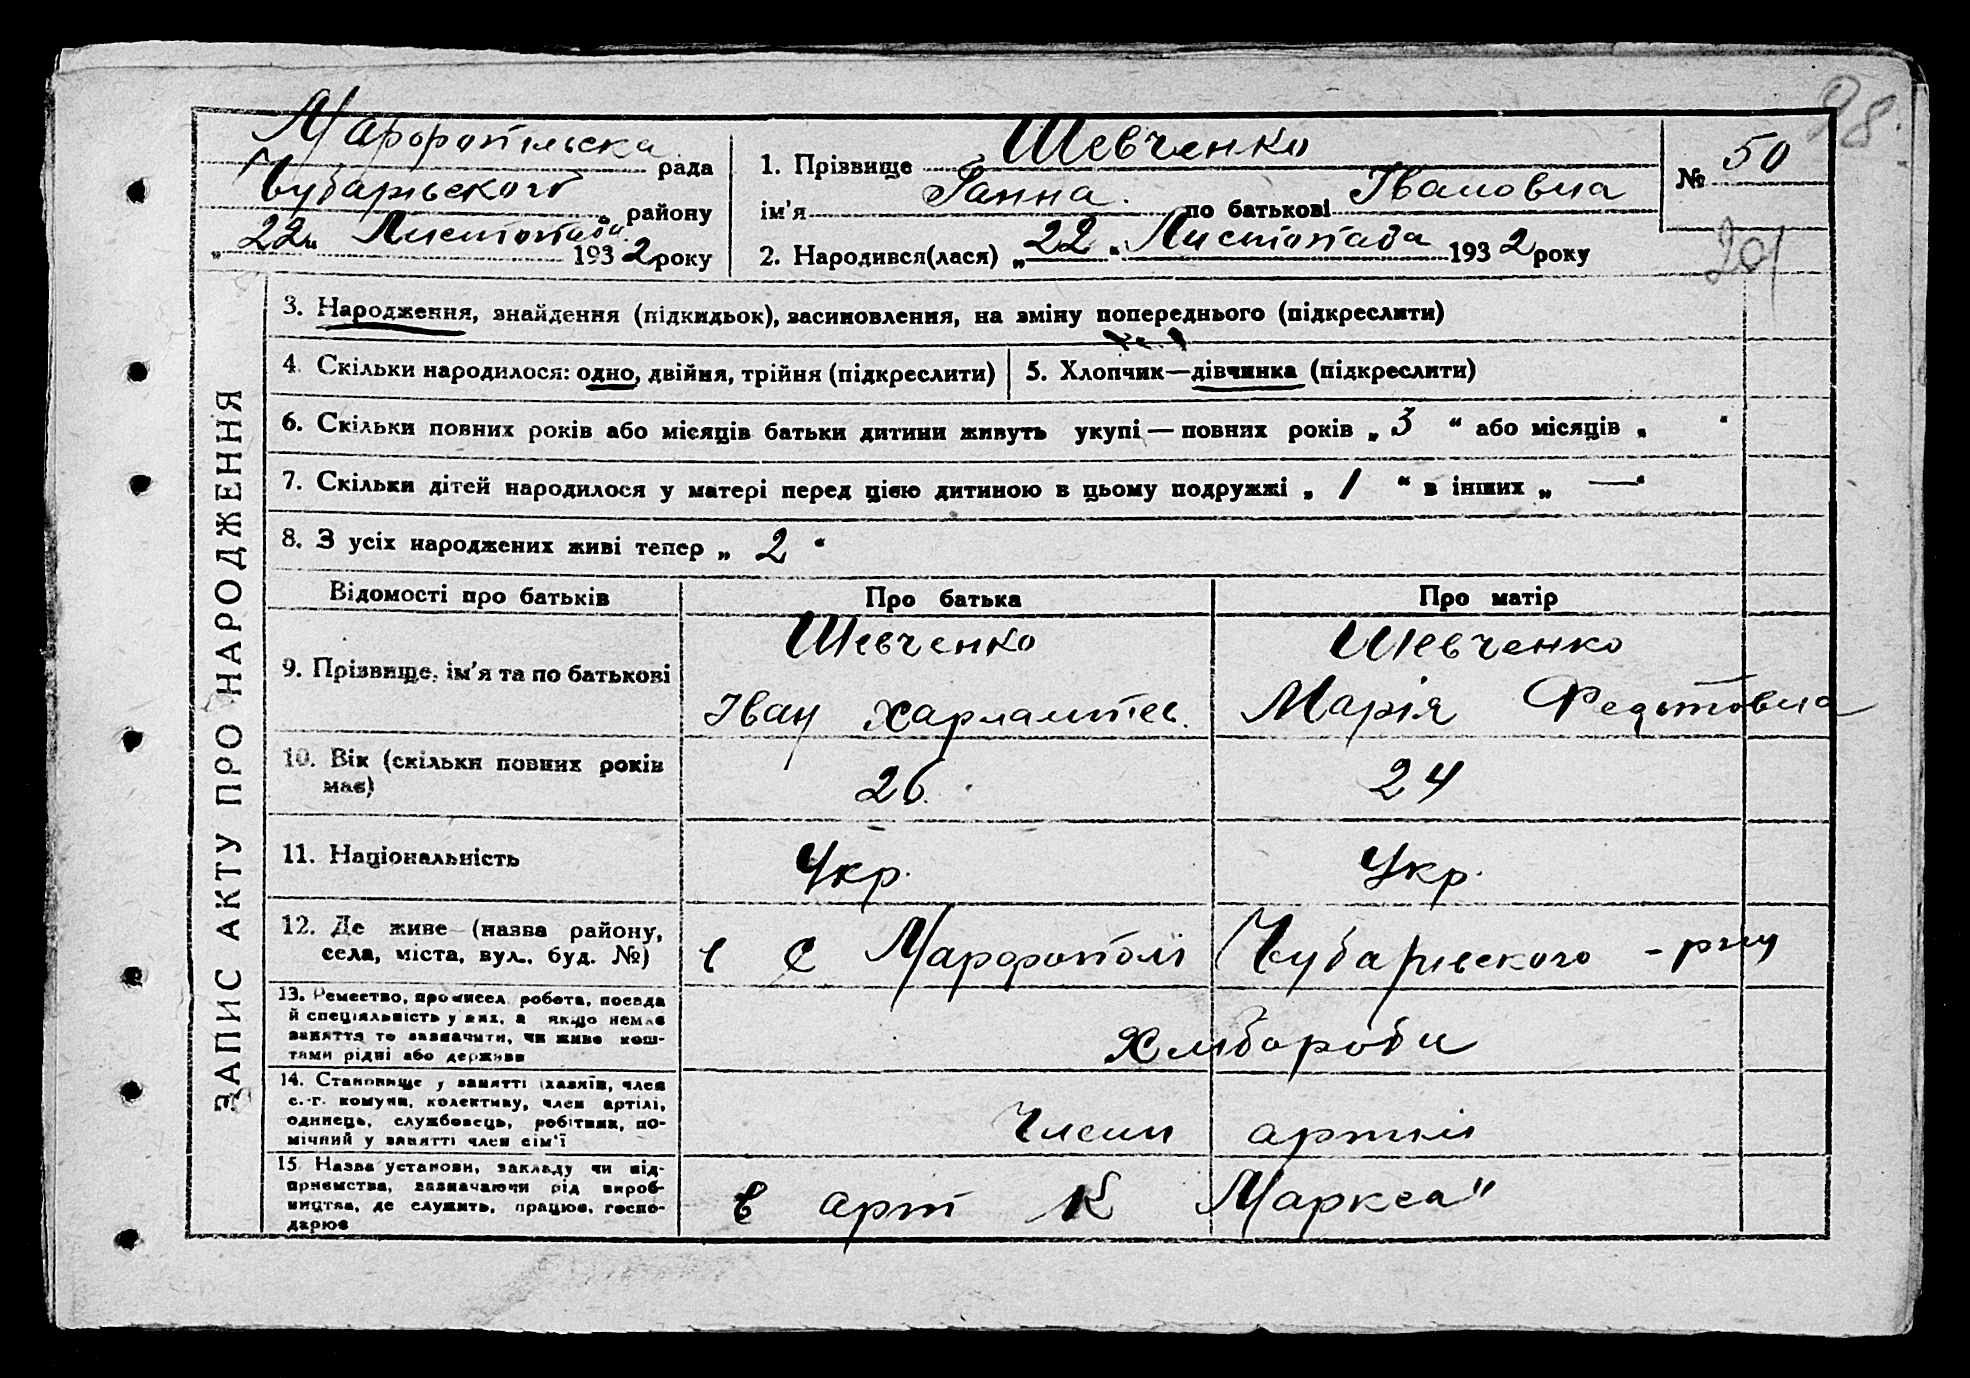 98.
Марфопільска рада
Чубарівського району
„22" Листопада 1932 року
1. Прізвище Шевченко
ім'я Ганна. по батькові Івановна
2. Народився(лася) „22" Листопада 1932 року
№ 50
201
ЗАПИС АКТУ ПРО НАРОДЖЕННЯ
3. Народження, знайдення (підкидьок), засиновлення, на зміну попереднього (підкреслити)
4. Скільки народилося: одно, двійня, трійня (підкреслити)
5. Хлопчик—дівчинка (підкреслити)
6. Скільки повних років або місяців батьки дитини живуть укупі — повних років „ 3 " або місяців „ "
7. Скільки дітей народилося у матері перед цією дитиною в цьому подружжі „ 1 " в інших „ — "
8. З усіх народжених живі тепер „ 2 "
Відомості про батьків Про батька Про матір
9. Прізвище, ім'я та по батькові
Шевченко
Іван Харлампієв.
Шевченко
Марія
10. Вік (скільки повних років має)
26. 24
11. Національність
Укр. Укр.
12. Де живе (назва району,
села, міста, вул., буд. №)
в с Марфополі Чубарівского р-ну
13. Ремество, промисел, робота, посада
й спеціяльність у них, а якщо немає
заняття то зазначити, чи живе кош-
тами рідні або держави
Хлібороби
14. Становище у занятті (хазяїн, член
с.-г. комуни, колективу, член артілі,
одинець, службовець, робітник, по-
мічний у занятті член сім'ї
Члени артілі
15. Назва установи, закладу чи під-
приємства, зазначаючи рід вироб-
ництва, де служить, працює, госпо-
дарює
в арт К Маркса"